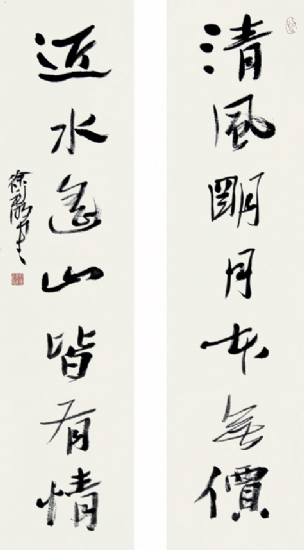 清風朙月本無價
近水遠山皆有情
徐